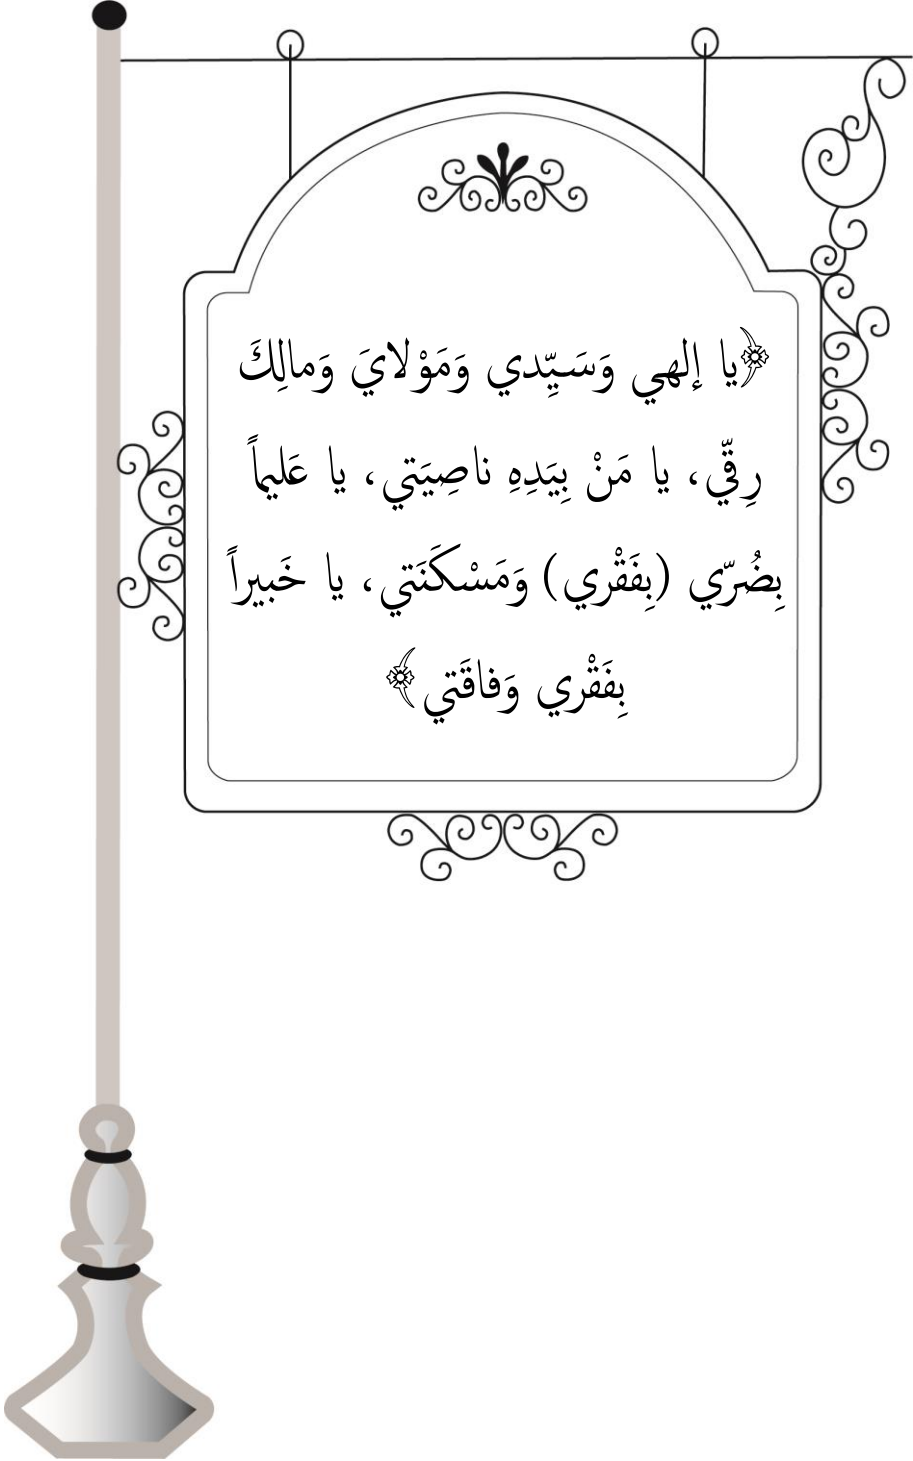 ﴿يا إلهي وَسَيِّدي وَمَوْلايَ وَمالِكَ
رِقّي، يا مَنْ بِيَدِهِ ناصِيَتي، يا عَليماً
بِضُرّي (بِفَقْري) وَمَسْكَنَتي، يا خَبيراً
بِفَقْري وَفاقَتي﴾